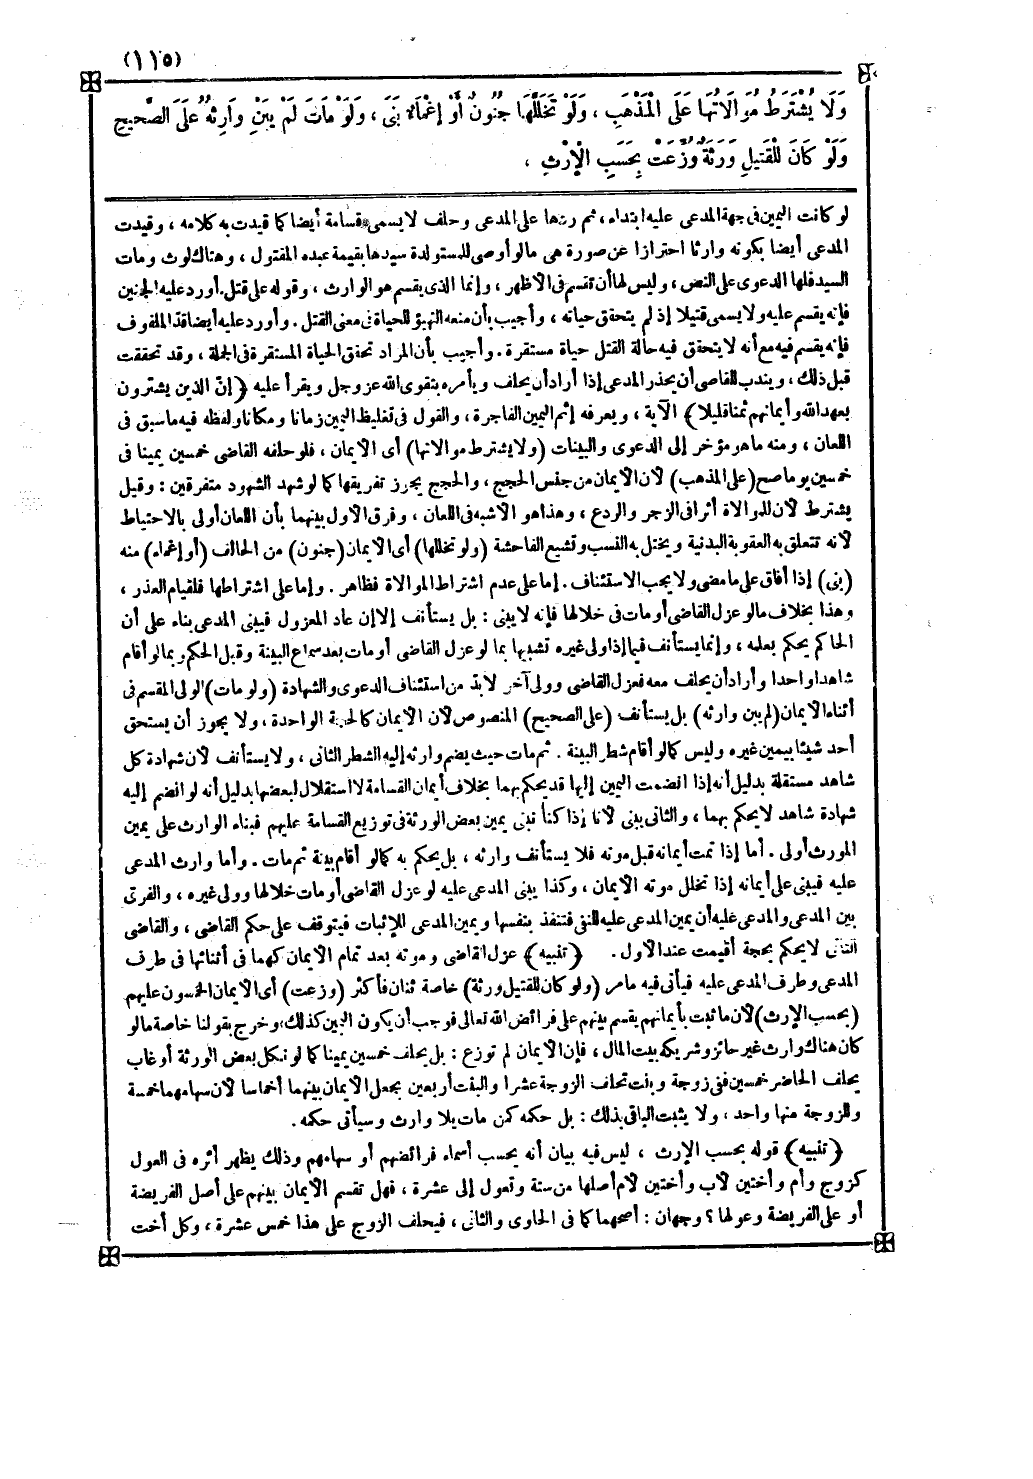 (١١٥)
وَلَا يُشْتَرَطُ مُوَالَاتُهَا عَلَى الْمَذْهَبِ ، وَلَوْ تَخَلَّلَهَا جُنُونٌ أَوْ إِغْمَاءٌ بَنَى ، وَلَوْ مَاتَ لَمْ يَبْنِ وَارِثُهُ عَلَى الصَّحِيحِ
وَلَوْ كَانَ لِلْقَتِيلِ وَرَثَةٌ وُزِّعَتْ بِحَسَبِ الْإِرْثِ ،
لو كانت اليمين فى جهة المدعى عليه ابتداء ، ثم ردّها على المدعى وحلف لا يسمى قسامة أيضا كما قيدت به كلامه ، وقيدت
المدعى أيضا بكونه وارثا احترازا عن صورة هى مالو أوصى للمستولدة سيدها بقيمة عبده المقتول ، وهناك لوث ومات
السيد فلها الدعوى على النص ، وليس لها أن تقسم فى الأظهر ، وإنما الذى يقسم هو الوارث ، وقوله على قتل . أورد عليه الجنين
فإنه يقسم عليه ولا يسمى قتيلا إذ لم يتحقق حياته ، وأجيب بأن منعه التهيؤ للحياة فى معنى القتل . وأورد عليه أيضا قدّ الملفوف
فإنه يقسم فيه مع أنه لا يتحقق فيه حالة القتل حياة مستقرة . وأجيب بأن المراد تحقق الحياة المستقرة فى الجملة ، وقد تحققت
قبل ذلك ، ويندب للقاضى أن يحذر المدعى إذا أراد أن يحلف ويأمره بتقوى الله عز وجل ويقرأ عليه ﴿إنّ الذين يشترون
بعهد الله وأيمانهم ثمنا قليلا﴾ الآية ، ويعرفه إثم اليمين الفاجرة ، والقول فى تغليظ اليمين زمانا ومكانا ولفظه فيه ما سبق فى
اللعان ، ومنه ما هو مؤخر إلى الدعوى والبينات (ولا يشترط موالاتها) أى الأيمان ، فلو حلفه القاضى خمسين يمينا فى
خمسين يوما صح (على المذهب) لأن الأيمان من جنس الحجج ، والحجج يجوز تفريقها كما لو شهد الشهود متفرقين : وقيل
يشترط لأن للموالاة أثرا فى الزجر والردع ، وهذا هو الأشبه فى اللعان ، وفرق الأول بينهما بأن اللعان أولى بالاحتياط
لأنه تتعلق به العقوبة البدنية ويختل به النسب وتشيع الفاحشة (ولو تخللها) أى الأيمان (جنون) من الحالف (أو إغماء) منه
(بنى) إذا أفاق على ما مضى ولا يجب الاستئناف . إما على عدم اشتراط الموالاة فظاهر . وإما على اشتراطها فلقيام العذر ،
وهذا بخلاف مالو عزل القاضى أو مات فى خلالها فإنه لا يبنى : بل يستأنف إلا إن عاد المعزول فيبنى المدعى بناء على أن
الحاكم يحكم بعلمه ، وإنما يستأنف فيما إذا ولى غيره تشبيها بما لو عزل القاضى أو مات بعد سماع البينة وقبل الحكم وبما لو أقام
شاهدا واحدا وأراد أن يحلف معه فعزل القاضى وولى آخر لابدّ من استئناف الدعوى والشهادة (ولو مات) الولى المقسم فى
أثناء الأيمان (لم يبن وارثه) بل يستأنف (على الصحيح) المنصوص لأن الأيمان كالحجة الواحدة ، ولا يجوز أن يستحق
أحد شيئا بيمين غيره وليس كما لو أقام شطر البينة . ثم مات حيث يضم وارثه إليه الشطر الثانى ، ولا يستأنف لأن شهادة كل
شاهد مستقلة بدليل أنه إذا انضمت اليمين إليها قد يحكم بهما بخلاف أيمان القسامة لا استقلال لبعضها بدليل أنه لو انضم إليه
شهادة شاهد لا يحكم بهما ، والثانى يبنى لأنا إذا كنا نبنى يمين بعض الورثة فى توزيع القسامة عليهم فبناء الوارث على يمين
المورث أولى . أما إذا تمت أيمانه قبل موته فلا يستأنف وارثه ، بل يحكم به كما لو أقام بينة ثم مات . وأما وارث المدعى
عليه فيبنى على أيمانه إذا تخلل موته الأيمان ، وكذا يبنى المدعى عليه لو عزل القاضى أو مات خلالها وولى غيره ، والفرق
بين المدعى والمدعى عليه أن يمين المدعى عليه للنفى فتنفذ بنفسها ويمين المدعى للإثبات فيتوقف على حكم القاضى ، والقاضى
الثانى لا يحكم بحجة أقيمت عند الأول . ﴿تنبيه﴾ عزل القاضى وموته بعد تمام الأيمان كهما فى أثنائها فى طرف
المدعى وطرف المدعى عليه فيأتى فيه ما مر (ولو كان للقتيل ورثة) خاصة ثنان فأكثر (وزعت) أى الأيمان الخمسون عليهم
(بحسب الإرث) لأن ما ثبت بأيمانهم يقسم بينهم على فرائض الله تعالى فوجب أن يكون اليمين كذلك ؛ وخرج بقولنا خاصة مالو
كان هناك وارث غير حائز وشريكه بيت المال ، فإن الأيمان لم توزع : بل يحلف خمسين يمينا كما لو نكل بعض الورثة أو غاب
يحلف الحاضر خمسين ففى زوجة وبنت تحلف الزوجة عشرا والبنت أربعين بجعل الأيمان بينهما أخماسا لأن سهامهما خمسة
وللزوجة منها واحد ، ولا يثبت الباقى بذلك : بل حكمه كمن مات بلا وارث وسيأتى حكمه .
﴿تنبيه﴾ قوله بحسب الإرث ، ليس فيه بيان أنه بحسب أسماء فرائضهم أو سهامهم وذلك يظهر أثره فى العول
كزوج وأم وأختين لأب وأختين لأم أصلها من ستة وتعول إلى عشرة ، فهل تقسم الأيمان بينهم على أصل الفريضة
أو على الفريضة وعولها ؟ وجهان : أصحهما كما فى الحاوى والثانى ، فيحلف الزوج على هذا خمس عشرة ، وكل أخت